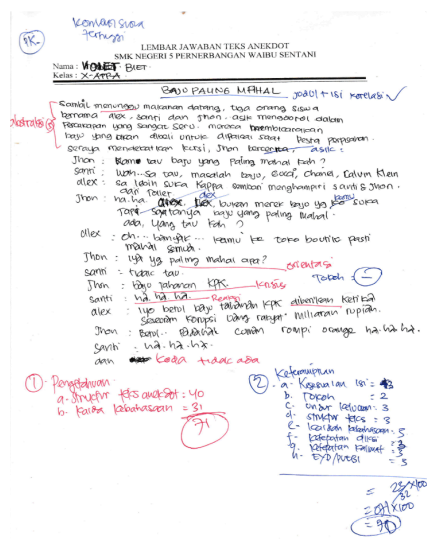 Komari suka
tertinggi
1K.
LEMBAR JAWABAN TEKS ANEKDOT
SMK NEGERI 5 PERNERBANGAN WAIBU SENTANI
Nama : VIOLET BLET
Kelas : X-ATRA
BAJU PALING MAHAL
judul + isi korelasi ✓
Sambil menunggu makanan datang, tiga orang siswa
bernama alex, santi dan Jhon. asik mengobrol dalam
percakapan yang sangat seru. mereka
baju yang akan dibeli untuk dipakai saat pesta perpisahan.
seraya mendekatkan kursi, Jhon
Jhon : tau baju yang paling mahal kah?
santi : wah..Sa tau, masalah baju, Gucci, Chanel, Calvin Klein
alex : sa lebih suka Kappa sambari menghampiri santi & Jhon.
dari Toilet.
Jhon : ha.ha. alex, bukan merek baju yg kamu suka
Tapi baju yang paling mahal.
ada, yang tau kah?
alex : oh... banyak... kamu ke toko boutiq pasti
mahal semua.
Jhon : iya yg paling mahal apa?
orientasi
santi : tidak tau.
Tokoh =
Jhon : baju tahanan KPK.
krisis
santi : ha. ha. ha.
Reaksi
alex : iyo betul baju tahanan KPK diberikan ketika
seseorang korupsi uang rakyat milliaran rupiah.
Jhon : Betul.. cuman rompi orange ha.ha.ha.
Santi : ha.ha.ha.
dan
koda tidak ada
1 Pengetahuan
a. struktur teks anekdot : 40
b. kaida kebahasaan = 31
71
2 Keterampilan
a. Kesesuaian isi = 3
b. Tokoh = 2
c. unsur kelucuan = 3
d. struktur teks = 3
e. kaidah kebahasaan = 3
f. ketepatan diksi
g. ketepatan kalimat = 3
h. EYD/PUEBI = 3
= x100
32
= x100
= 90